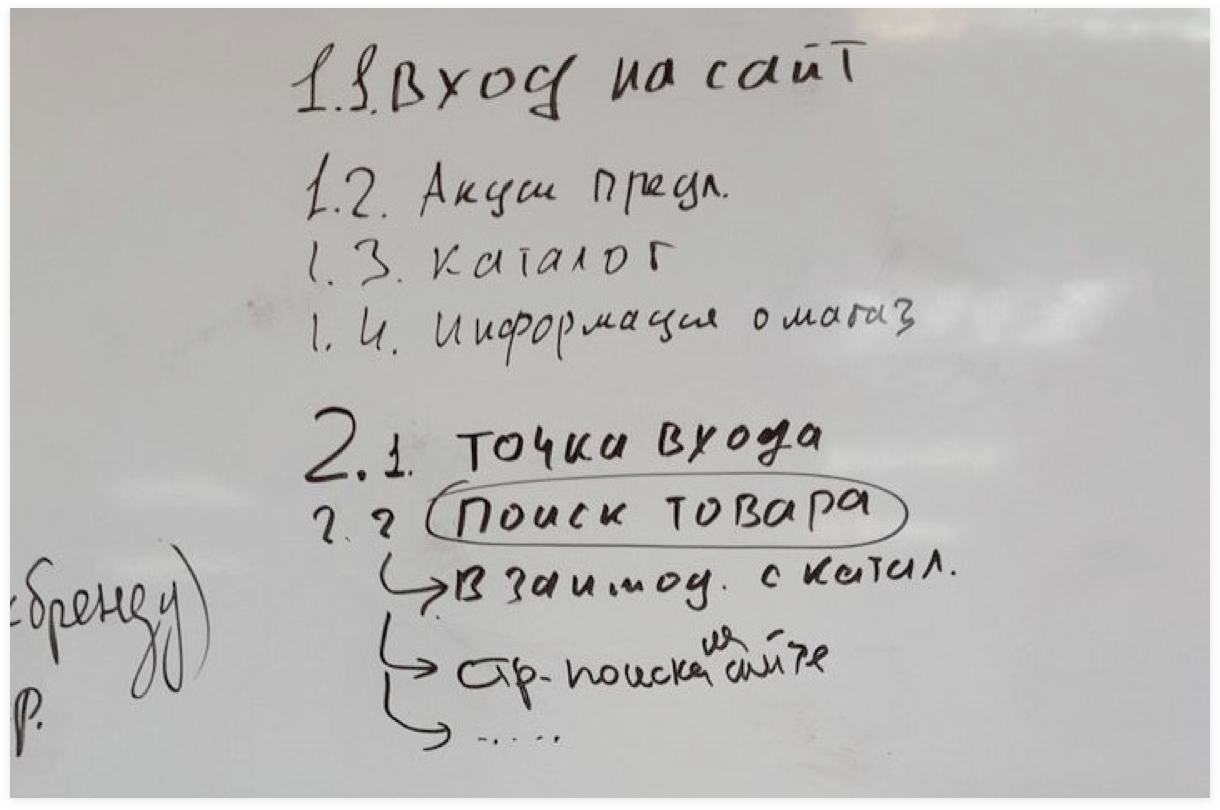 1.1. Вход на сайт
1.2. Акции предл.
1.3. каталог
1.4. Информация о магаз
2.1. Точка входа
2.2 Поиск товара
Взаимод. с катал.
стр. поиска на сайте
.....
бренду)
р.